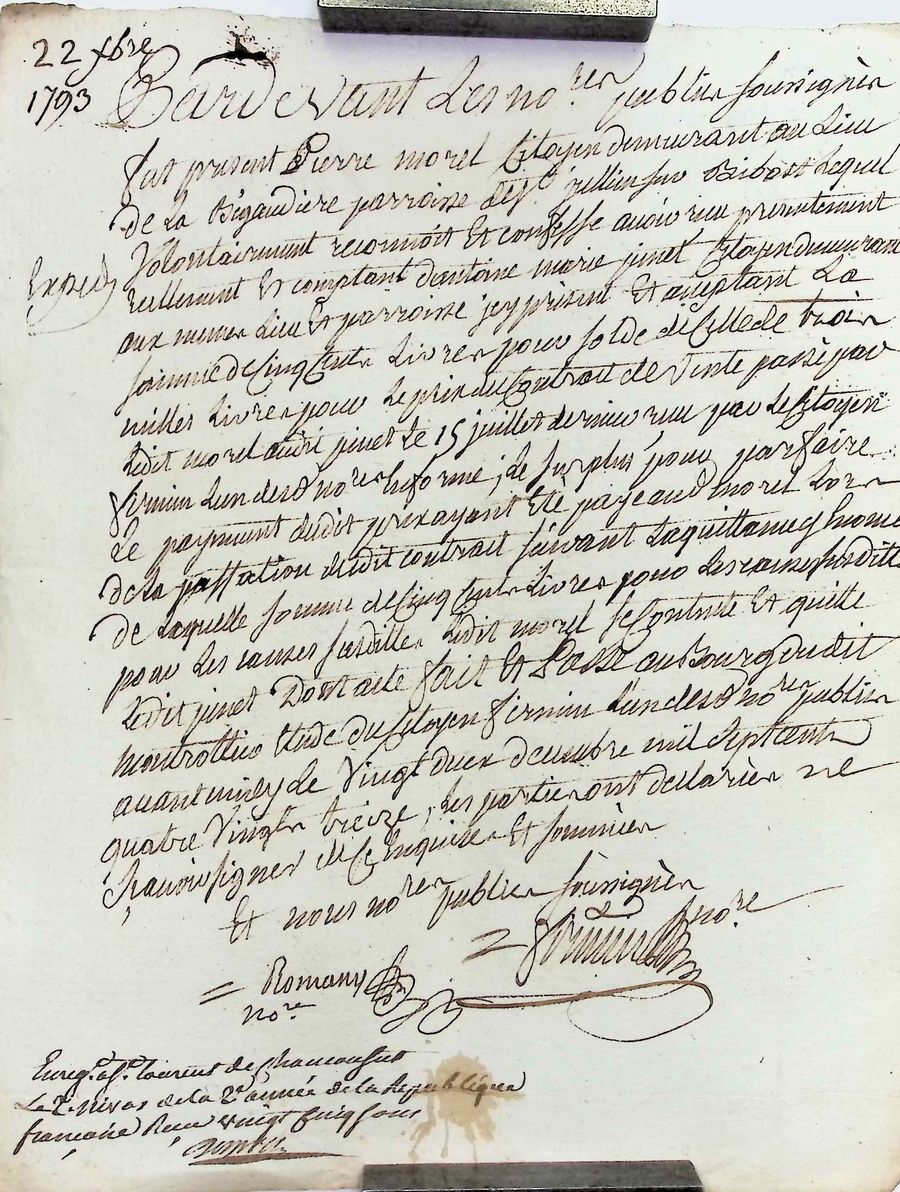 22 xbre
1793
Pardevant Les no.res publics soussignés
fut présent Pierre morel Citoyen demeurant au Lieu
de La Bigaudiere parroisse de st. jullien sur Bibost Lequel
Volontairement reconnoit Et confesse avoir reçu présentement
Exped
reellement Et comptant d'antoine marie jinet Citoyen demeurant
aux meme Lieu Et parroisse jcy présent Et acceptant La
somme de Cinq Cents Livres pour solde de Celle de trois
milles Livres pour Le prix du Contrat de Vente passé par
Ledit morel audit jinet Le 15 juillet dernier reçu par Le Citoyen
firmin L'un desd nores en forme; Le surplus pour parfaire
Le payment dudit prix ayant été payé aud morel Lors
de la passation dudit contrat suivant La quittance y
de Laquelle somme de Cinq Cents Livres pour Les causes susditte
pour Les causes susdittes Ledit morel se Contente Et quitte
Ledit jinet Dont acte fait Et Passé au Bourg dudit
montrottier Etude du Citoyen firmin L'un desd nores publics
avant midy Le Vingt deux decembre mil Sept cents
quatre Vingts treize, Les parties ont declarées ne
sçavoir signer de Ce Enquises Et sommées
Et nous nores publics soussignés
= firmin nore
= Romany
nore
Enreg.é a st. Laurent de Chamousset
Le 2. nivos de la 2e année de la Republique
françoise Reçu vingt cinq sous